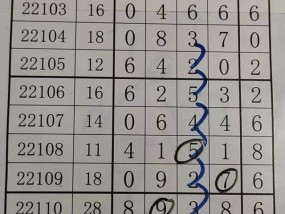 22103 16 0 4 6 6 6
22104 18 0 8 3 7 0
22105 12 6 4 2 0 2
22106 16 6 2 5 3 2
22107 14 0 6 4 4 6
22108 11 4 1 5 1 8
22109 18 0 9 2 1 6
22110 28 8 9 3 8 6